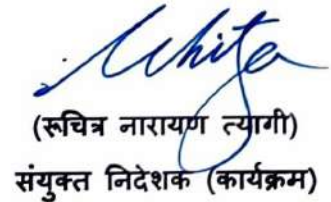 (रूचित्र नारायण त्यागी)
संयुक्त निदेशक (कार्यक्रम)